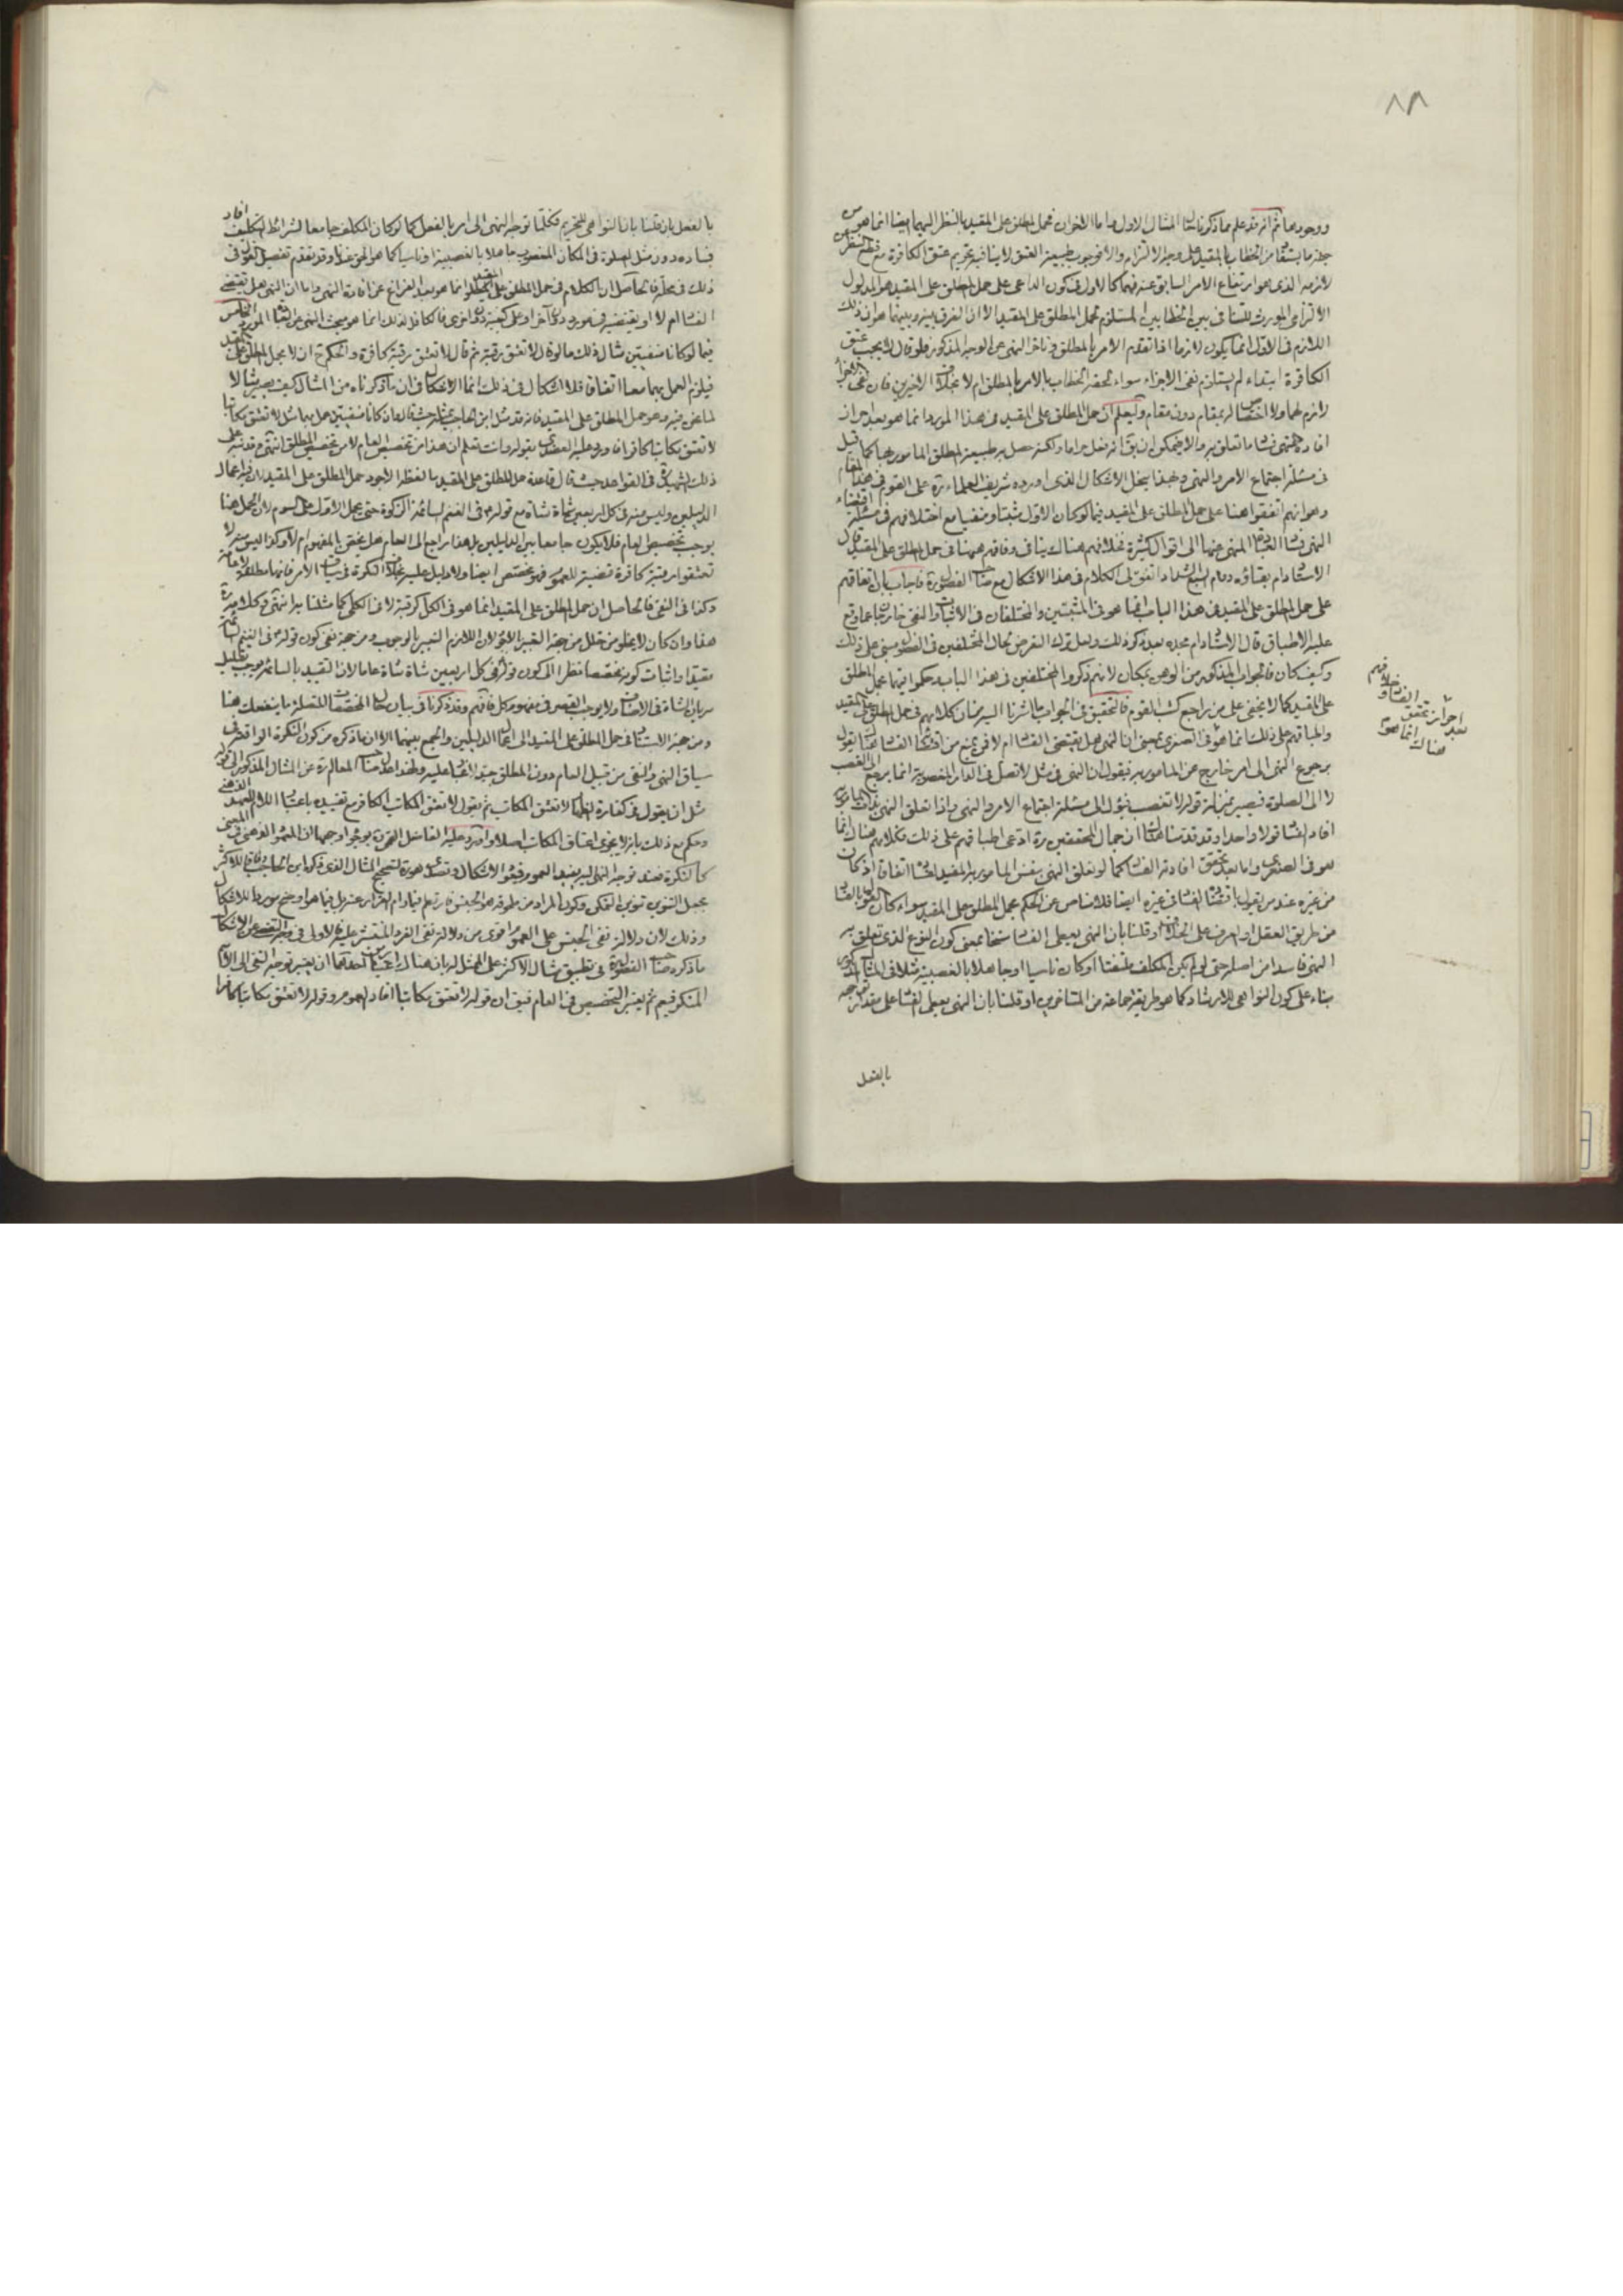 ٨٨
ووجودها ثم انه قد علم مما ذكرنا المثال الاول واما الاخران فحمل المطلق على المقيد بالنظر اليهما ايضا انما هو من
جهة ما يستفاد من الخطاب بالمقيد على وجه الالتزام والا فوجوب طبيعة العتق لا ينافيه تحريم عتق الكافرة مع قطع النظر عن
لازمه الذى هو ارتفاع الامر السابق عنه فهما كالاول فى كون الداعى على حمل المطلق على المقيد هو المدلول
الالتزامى المورث للتنافى بين الخطابين المستلزم لحمل المطلق على المقيد الا ان الفرق بينه وبينهما هو ان ذلك
اللازم فى الاول انما يكون لازما اذا تقدم الامر بالمطلق وتاخر النهى عن الوجه المذكور فلو قال لا يجب عتق
الكافرة ابتداء لم يستلزم نفى الاجزاء سواء لحقه الخطاب بالامر بالمطلق ام لا بخلاف الاخيرين فان نفى الاجزاء
لازم لهما ولا اختصاص له بمقام دون مقام وليعلم ان حمل المطلق على المقيد فى هذا المورد انما هو بعد احراز ان
افادة النهى فساد ما تعلق به والا فيمكن ان يق انه فعل حراما ولكنه حصل به طبيعة المطلق المامور بها كما قيل
فى مسئلة اجتماع الامر والنهى وبهذا ينحل الاشكال الذى اورده شريف العلماء ره على القوم فى هذا المقام
وهو انهم اتفقوا هنا على حمل المطلق على المقيد فيما لو كان الاول مثبتا ومنفيا مع اختلافهم فى مسئلة اقتضاء
النهى فساد العبادة المنهى عنها الى اقوال كثيرة فخلافهم هناك ينافى وفاقهم ههنا فى حمل المطلق على المقيد قال
الاستاد ادام بقاؤه دوام السبع الشداد اتفق لى الكلام فى هذا الاشكال مع صاحب الضوابط فاجاب بان اتفاقهم
على حمل المطلق على المقيد فى هذا الباب انما هو فى المثبتين والمختلفان فى الاثبات والنفى خارجان عما وقع
عليه الاطباق قال الاستاد ادام مجده بعد ذكر ذلك ولعل ترك التعرض لحال المختلفين فى الفصول مبنى على ذلك
وكيف كان فالجواب المذكور من الوهن بمكان لانهم ذكروا المختلفين فى هذا الباب وحكموا فيهما بحمل المطلق
على المقيد كما لا يخفى على من راجع كتب القوم فالتحقيق فى الجواب ما اشرنا اليه من ان كلامهم فى حمل المطلق على المقيد
واطباقهم على ذلك انما هو فى الصغرى بمعنى ان النهى هل يقتضى الفساد ام لا فمن يمنع من اقتضاء الفساد هناك يقول
برجوع النهى الى امر خارج عن المامور به فيقول ان النهى فى مثل لا تصل فى الدار المغصوبة انما يرجع الى الغصب
لا الى الصلوة فيصير بمنزلة قوله لا تغصب فيؤل الى مسئلة اجتماع الامر والنهى واذا تعلق النهى بذات المامور به
افاد الفساد قولا واحدا وقد قدمنا هناك ان جمال المحققين ره ادعى اطباقهم على ذلك فكلامهم هناك انما
هو فى الصغرى واما بعد تحقق افادته الفساد كما لو تعلق النهى بنفس المامور به المقيد هنا اتفاقا اذ كان
من غيره عند من يقول باقتضاء الفساد فى غيره ايضا فلا مناص عن الحكم بحمل المطلق على المقيد سواء كان القول بالفساد
من طريق العقل او العرف على الخلاف او قلنا بان النهى يعطى الفساد سنخا بمعنى كون النوع الذى تعلق به
النهى فاسدا من اصله حتى لو لم يكن المكلف ملتفتا او كان ناسيا او جاهلا بالغصبية مثلا فى المثال المذكور
بناء على كون النواهى للارشاد كما هو طريقة جماعة من المتاخرين او قلنا بان النهى يعطى الفساد على مقدار توجهه
بالفعل
خلافهم
بعد احراز تحقق الفساد و
هناك انما هو
بالفعل بان قلنا بان النواهى للتحريم فكلما توجه النهى الى امر بالفعل كما لو كان المكلف جامعا لشرائط التكليف افاد
فساده دون مثل الصلوة فى المكان المغصوب جاهلا بالغصبية او ناسيا كما هو الحق عندنا وقد تقدم تفصيل القول فى
ذلك فى محله فالحاصل ان الكلام فى حمل المطلق على المقيد انما هو بعد الفراغ عن افادة النهى واما ان النهى هل يقتضى
الفساد ام لا او يقتضيه فى مورد دون آخر او على كيفية دون اخرى فالكافل لذلك انما هو مبحث النهى عن العبادة المورد الخامس
فيما لو كانا منفيين مثال ذلك ما لو قال لا تعتق رقبة ثم قال لا تعتق رقبة كافرة والحكم ح ان لا يحمل المطلق على المقيد
فيلزم العمل بهما معا اتفاقا فلا اشكال فى ذلك انما الاشكال فى ان ما ذكرناه من المثال كيف يصير مثالا
لما نحن فيه وهو حمل المطلق على المقيد فانه قد مثل ابن الحاجب بمثله حيث قال فان كانا منفيين عمل بهما مثل لا تعتق مكاتبا
لا تعتق مكاتبا كافرا واورد عليه العضدى بقوله وانت تعلم ان هذا من تخصيص العام لا من تخصيص المطلق انتهى وقد نبه على
ذلك الشهيد ره فى القواعد حيث قال قاعدة حمل المطلق على المقيد بالفظه الاجود حمل المطلق على المقيد لان فيه اعمال
الدليلين وليس منه فى كل اربعين شاة شاة مع قوله ص فى الغنم السائمة الزكوة حتى يحمل الاول على السوم لان الحمل هنا
يوجب تخصيص العام فلا يكون جامعا بين الدليلين بل هذا راجع الى العام هل يخص بالمفهوم ام لا وكذا ليس منه لا
تعتقوا رقبة كافرة قضية للعموم فهو تخصيص ايضا ولا دليل عليه بخلاف النكرة فى سياق الامر فانها مطلقة لا عامة
وكذا فى النفى فالحاصل ان حمل المطلق على المقيد انما هو فى الكل كرقبة لا فى الكلى كما مثلنا به انتهى وكلامه ره
هذا وان كان لا يخلو من خلل من جهة التعبير بالاولى لان اللازم التعبير بالوجوب ومن جهة نفى كون قوله ص فى الغنم السائمة
مقيدا واثبات كونه مخصصا نظرا الى كون قوله فى كل اربعين شاة شاة عاما لان التقييد بالسائمة يوجب تقليل
سريان الشاة فى الاصناف ولا يوجب القصر فى مفهوم كل فافهم وقد ذكرنا فى بيان حال المخصصات المتصلة ما ينفعك هنا
ومن جهة الاستناد فى حمل المطلق على المقيد الى اعمال الدليلين والجمع بينهما الا ان ما ذكره من كون النكرة الواقعة فى
سياق النهى والنفى من قبيل العام دون المطلق جيد لا غبار عليه ولهذا عدل صاحب المعالم ره عن المثال المذكور الى قوله
مثل ان يقول فى كفارة الظهار لا تعتق المكاتب ثم يقول لا تعتق المكاتب الكافر مع تقييده باعتبار اللام للعهد الذهنى
وحكم مع ذلك بانه لا يجزى اعتاق المكاتب اصلا واورد عليه الفاضل القمى ره بوجوه اوجهها ان المعهود الذهنى فى المعنى
كالنكرة فعند توجه النهى اليه يفيد العموم فيعود الاشكال وتصدى هو ره لتصحيح المثال الذى ذكره ابن الحاجب وفاقا للاكثر
بجعل التنوين تنوين التمكن وكون المراد من مدخوله هو الجنس
وذلك لان دلالة نفى الجنس على العموم اقوى من دلالة نفى الفرد المنتشر عليه فالاولى فى وجه التفصى عن الاشكال
ما ذكره صاحب الضوابط فى تطبيق مثال الاكثر على الممثل له بان هناك اعتبارين احدهما ان يعتبر توجه النفى الى الاسم
المنكر فيعم ثم يعتبر التخصيص فى العام فيق ان قوله لا تعتق مكاتبا افاد العموم وقوله لا تعتق مكاتبا كافرا